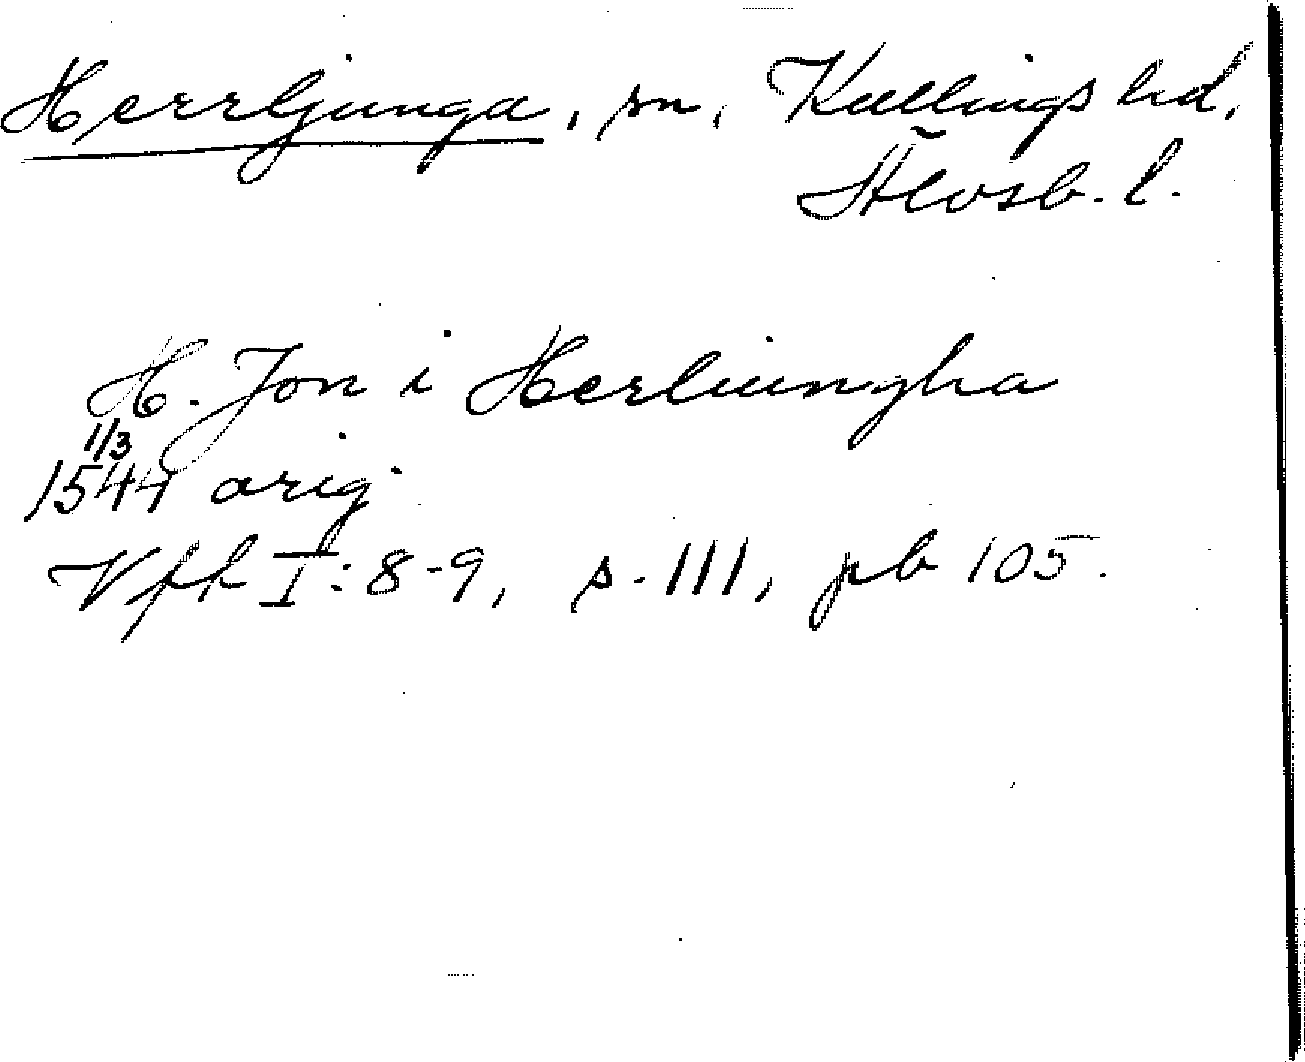 Herrljunga, sn, Kullings hd,
Älvsb. l.
H. Jon i Herliungha
1/3
1544 orig
Vfk I: 8-9, s. 111, pb 105.